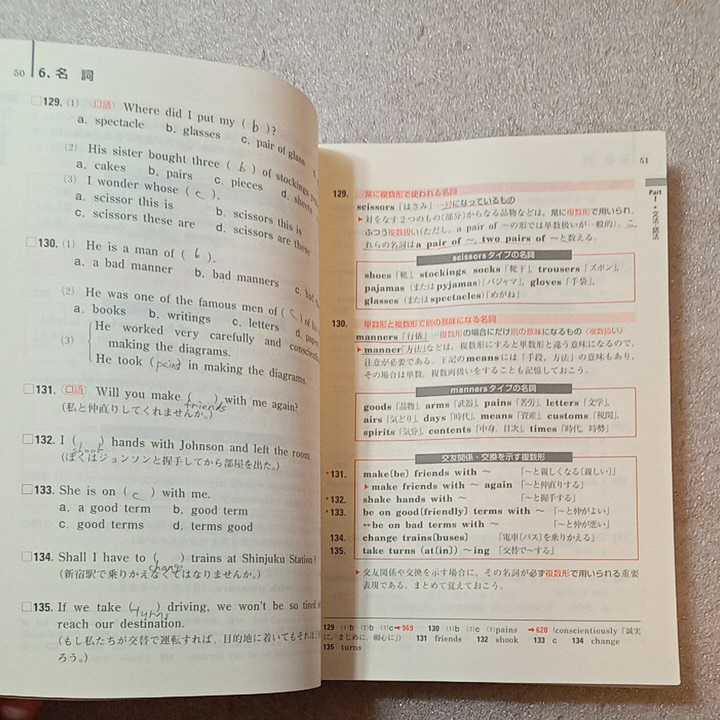 50 6. 名 詞
□129. (1) 口語 Where did I put my ( b )?
a. spectacle b. glasses c. pair of glass
(2) His sister bought three ( b ) of stockings
a. cakes b. pairs c. pieces d. sheets
(3) I wonder whose ( c ).
a. scissor this is b. scissors this is
c. scissors these are d. scissors are these
□130. (1) He is a man of ( b ).
a. a bad manner b. bad manners
(2) He was one of the famous men of ( c )
a. books b. writings c. letters
(3) He worked very carefully and
making the diagrams.
He took (pains) in making the diagrams.
□131. 口語 Will you make (friends) with me again?
(私と仲直りしてくれませんか。)
□132. I (shook) hands with Johnson and left the room.
(ぼくはジョンソンと握手してから部屋を出た。)
□133. She is on ( c ) with me.
a. a good term b. good term
c. good terms d. terms good
□134. Shall I have to (change) trains at Shinjuku Station?
(新宿駅で乗りかえなくてはなりませんか。)
□135. If we take (turns) driving, we won't be so tired
reach our destination.
(もし私たちが交替で運転すれば、目的地に着いてもそれほ
ろう。)
51
Part 1・文法・語法
129. 常に複数形で使われる名詞
scissors「はさみ」一対になっているもの
▶対をなす2つのもの(部分)からなる品物などは、常に複数形で用いられ、
ふつう複数扱い(ただし、a pair of 〜の形では単数扱いが一般的)。こ
れらの名詞はa pair of 〜, two pairs of 〜と数える。
scissorsタイプの名詞
shoes「靴」, stockings, socks「靴下」, trousers「ズボン」,
pajamas (またはpyjamas)「パジャマ」, gloves「手袋」,
glasses (またはspectacles)「めがね」
130. 単数形と複数形で別の意味になる名詞
manners「行儀」一複数形の場合にだけ別の意味になるもの(複数扱い)
▶manner「方法」などは、複数形にすると単数形と違う意味になるので、
注意が必要である。下記のmeansには「手段、方法」の意味もあり、
その場合は単数、複数両扱いをすることも記憶しておこう。
mannersタイプの名詞
goods「品物」, arms「武器」, pains「苦労」, letters「文学」,
airs「気どり」, days「時代」, means「資産」, customs「税関」,
spirits「気分」, contents「中身、目次」, times「時代、時勢」
交友関係・交換を示す複数形
•131. make(be) friends with 〜 「〜と親しくなる(親しい)」
▶make friends with 〜 again 「〜と仲直りする」
•132. shake hands with 〜 「〜と握手する」
•133. be on good(friendly) terms with 〜 「〜と仲がよい」
↔be on bad terms with 〜 「〜と仲が悪い」
134. change trains(buses) 「電車(バス)を乗りかえる」
135. take turns (at(in)) 〜ing 「交替で〜する」
▶交友関係や交換を示す場合に、その名詞が必ず複数形で用いられる重要
表現である。まとめて覚えておこう。
129 (1)b (2)b (3)c →969 130 (1)b (2)c (3)pains →620 (conscientiously「誠実
に、まじめに、良心に」) 131 friends 132 shook 133 c 134 change
135 turns